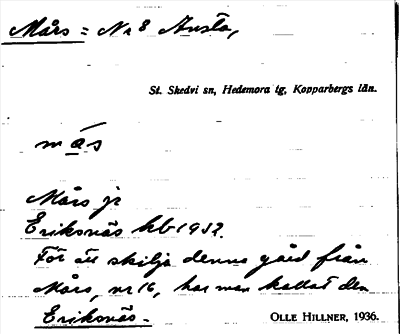 Mårs = Nr 8 Knusta,
St. Skedvi sn, Hedemora tg, Kopparbergs län.
mås
Mårs jr
Eriksnäs hb 1932.
För att skilja denna gård från
Mårs, nr 16, har man kallat den
Eriksnäs.
OLLE HILLNER, 1936.